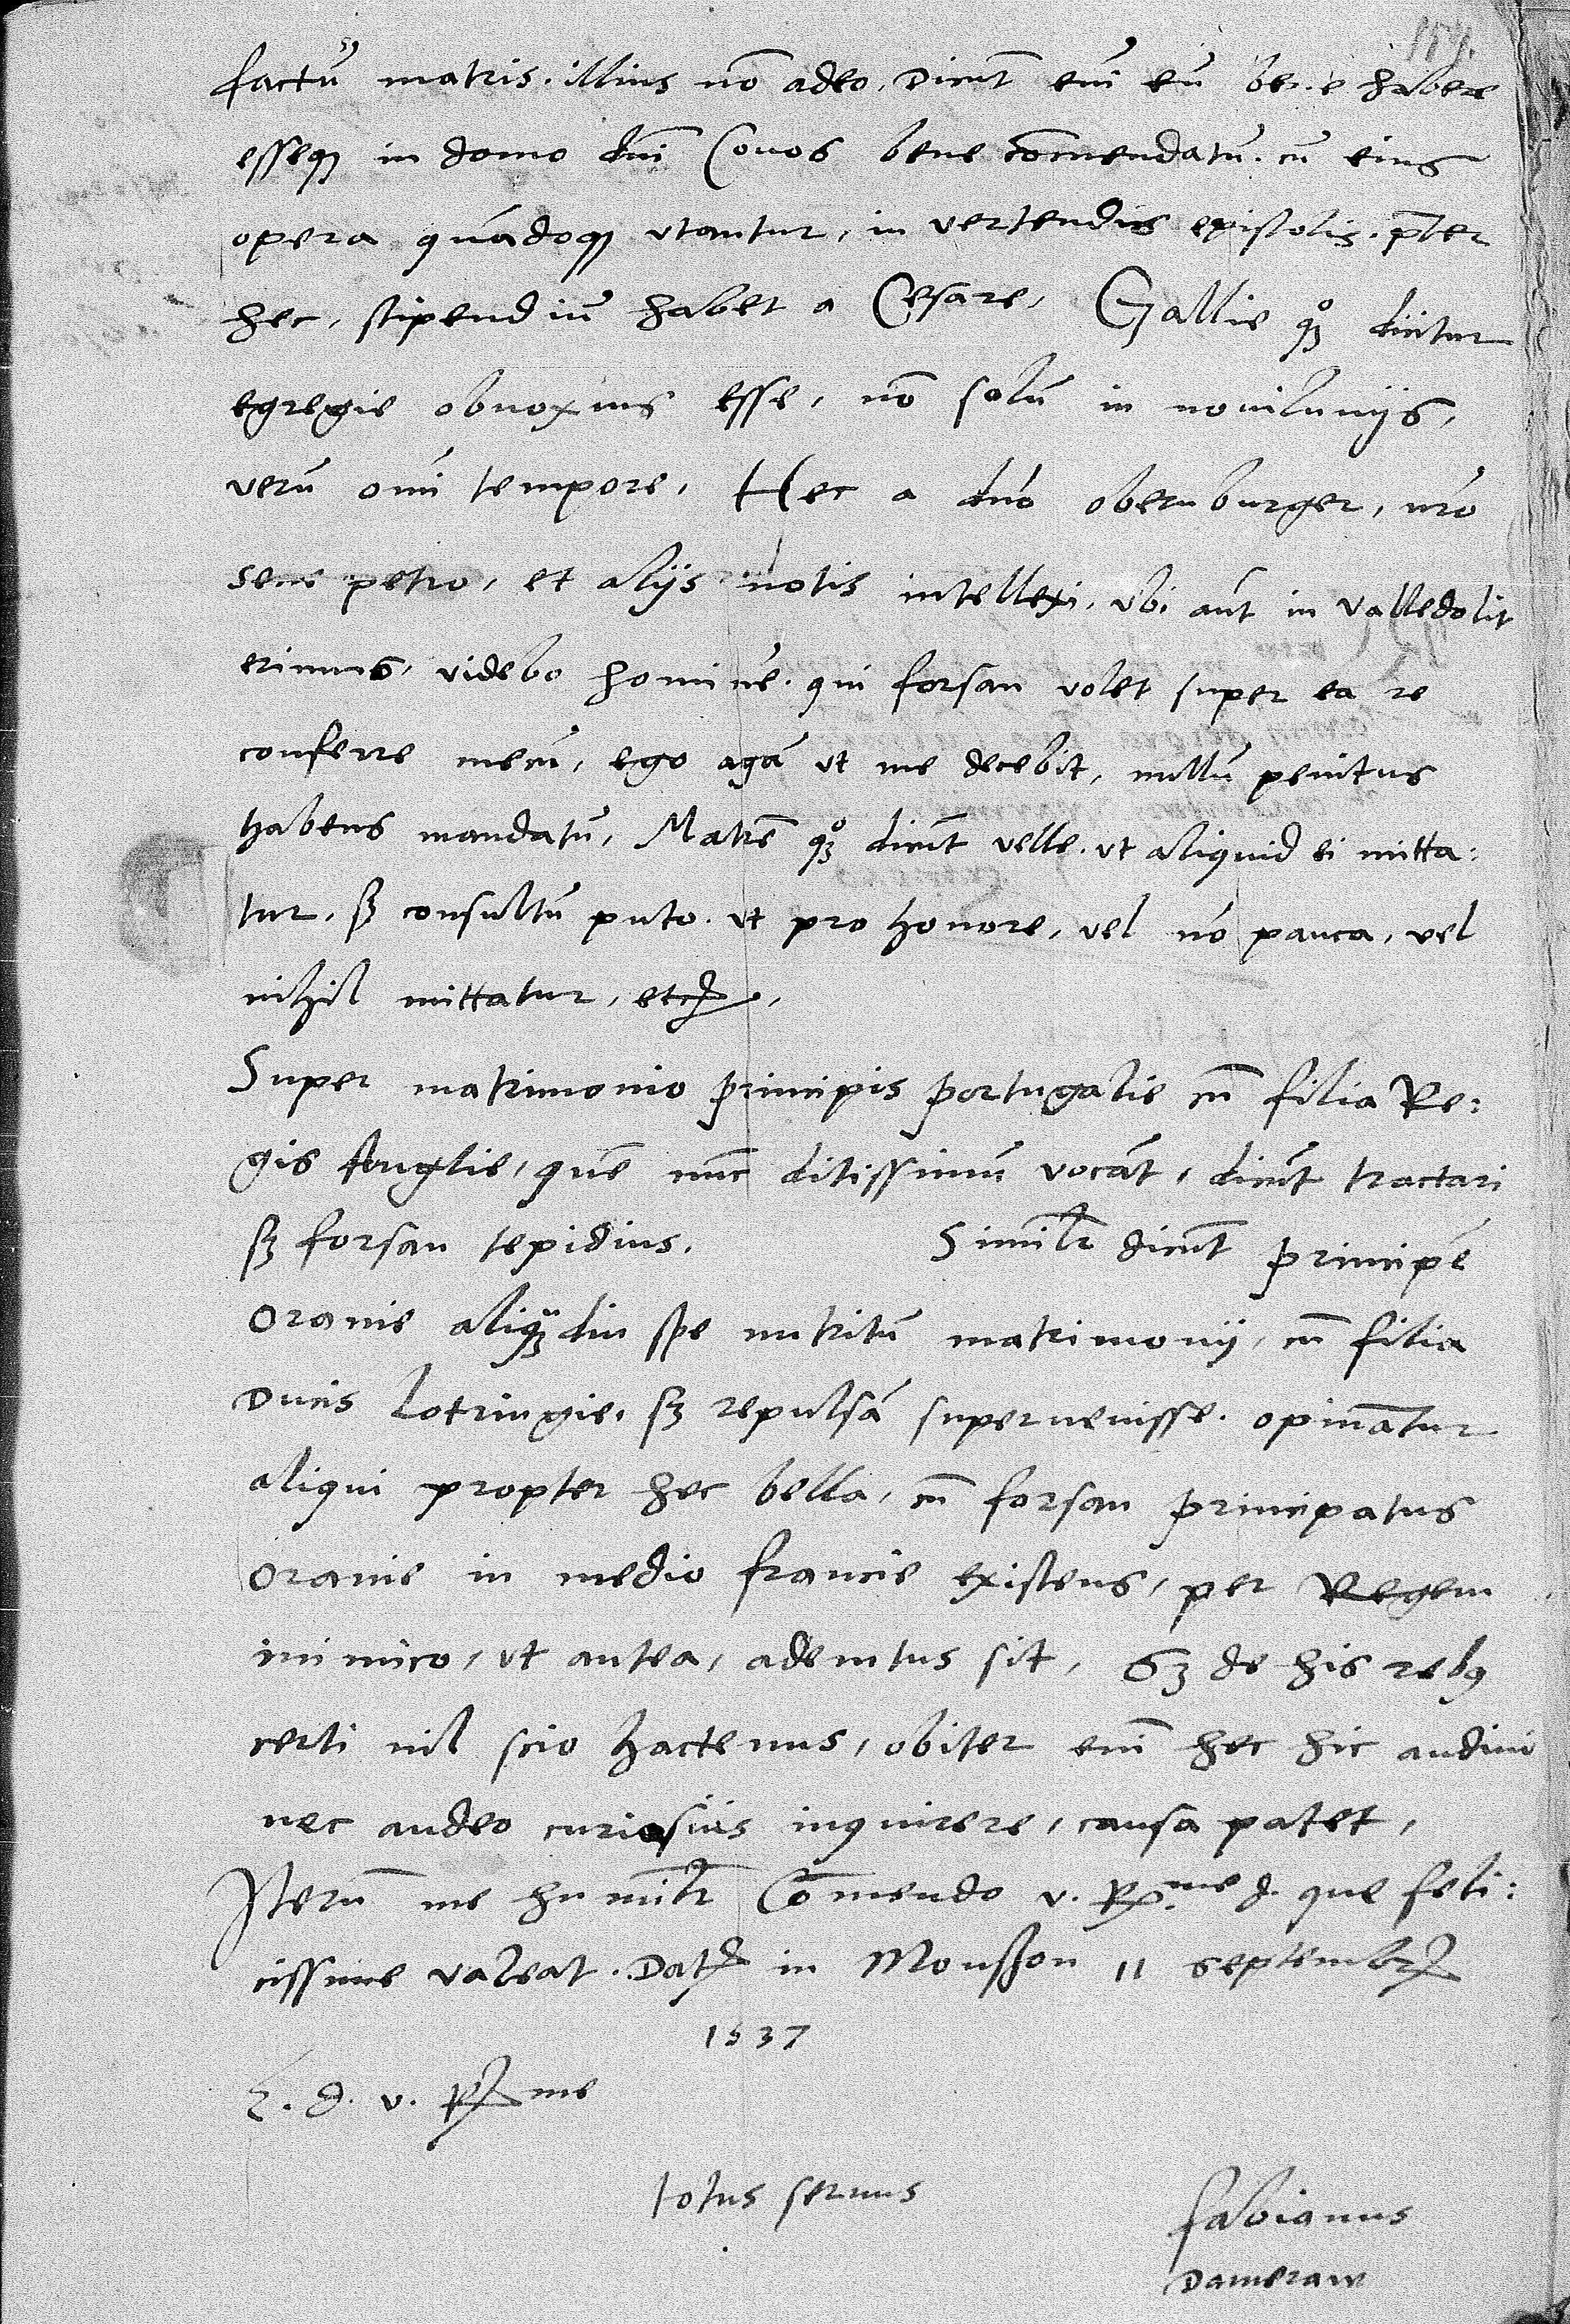 factū matris. illius nō adeo. Dicūt em̄ eū bene habere
esseq₃ in domo dn̄i Couos bene com̄endatū. cū eius
opera quādoq₃ vtantur, in vertendis epistolis. p̄ter
hec, stipendiū habet a Cesare, Gallie q₃° dicitur
egregie obnoxius esse, nō solū in noviluniis,
verū om̄i tempore, Hec a dn̄o obernburger, n̄ro
sene petro, et aliis notis intellexi, vbi aūt in Valledolit
erimus, videbo hominē. qui forsan volet super ea re
conferre mecū, ego agā vt me decebit, nullū penitus
habens mandatū, Matrē q₃° dicūt velle. vt aliquid ei mitta:
tur. s₃ consultū puto. vt pro honore, vel nō pauca, vel
nihil mittatur, etc.
Super matrimonio principis portugalie cū filia Re:
gis Anglie, quē nūc ditissimū vocāt, dicūt tractari
s₃ forsan tepidius. Similr̄ dicūt principē
Oranie aliq₃diu spe nutritū matrimonij, cū filia
Ducis Lotringie, s₃ repulsā supervenisse. opinātur
aliqui propter hec bella, cū forsan principatus
Oranie in medio francie existens, per Regem
inimico, vt antea, ademtus sit, S₃ de his reb₉
certi nil scio hactenus, obiter em̄ hec hic audiui
nec audeo curiosius inquirere, causa patet,
Iterū me humilr̄ Cōmendo v. R.me d. que feli:
cissime valeat. Dat in Monsson 11 septembr
1537
E. d. v. R me
totus seruus
fabianus
Dameraw